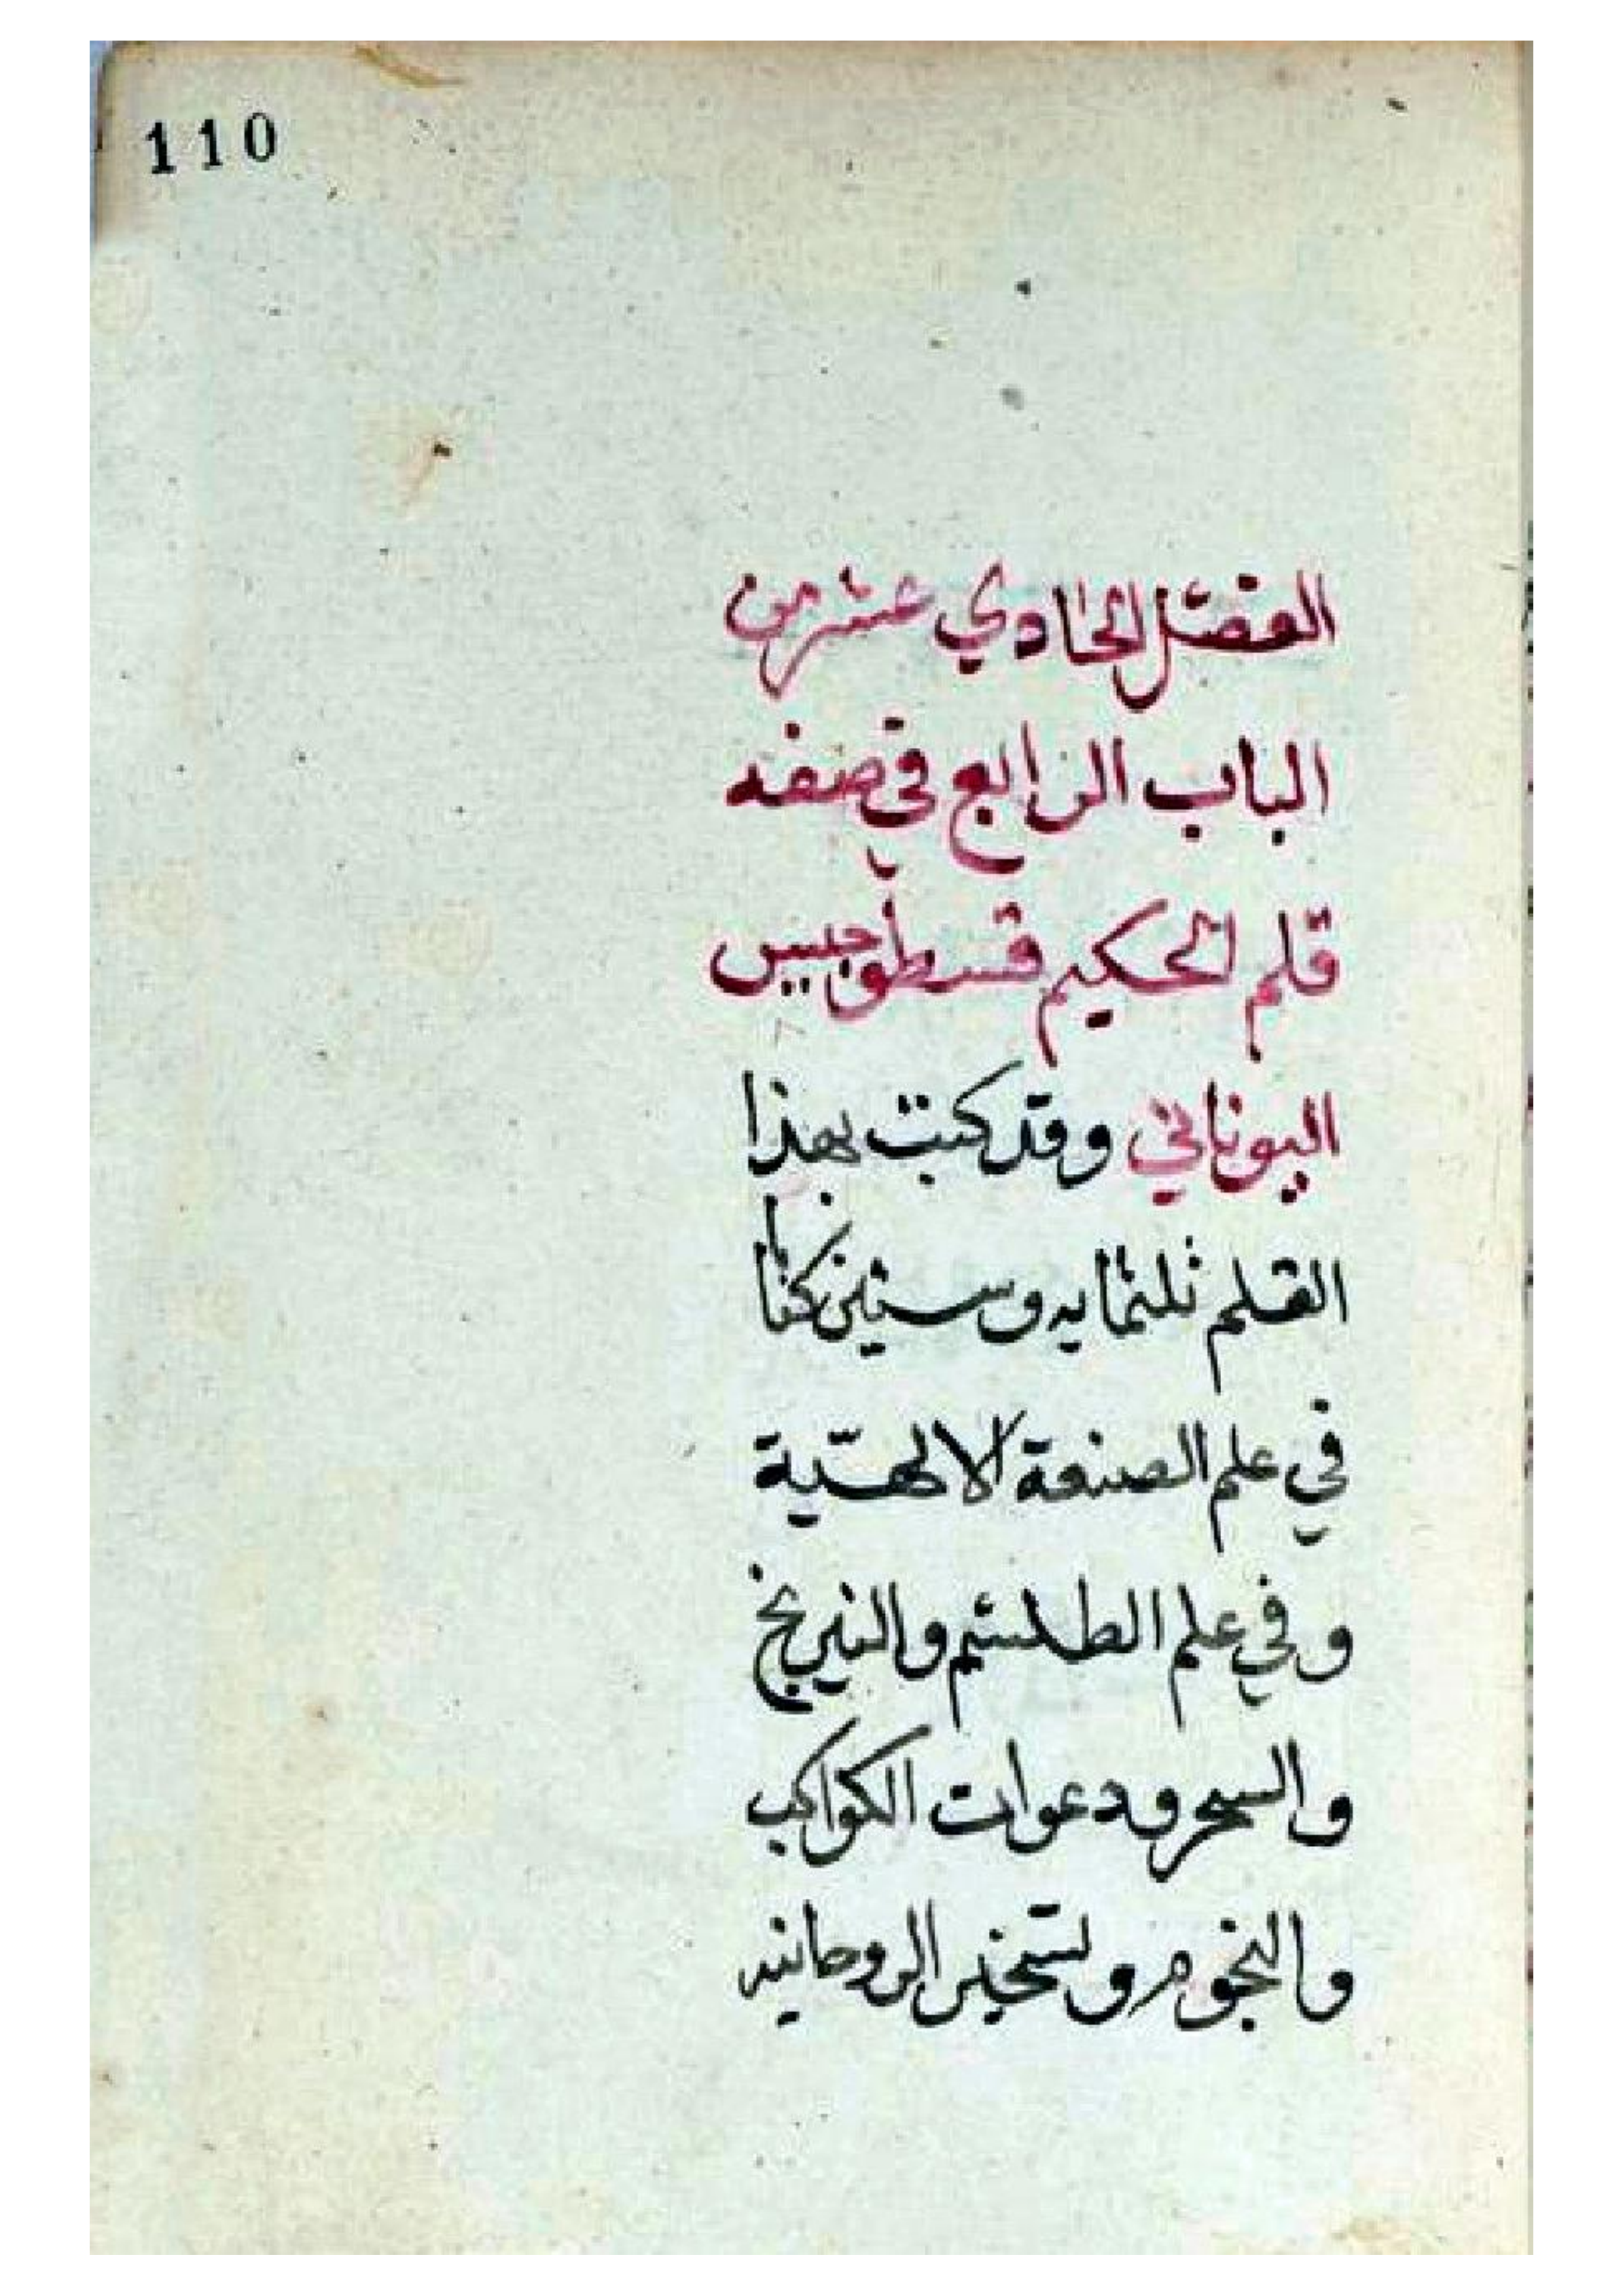 110
الفصل الحادي عشر من
الباب الرابع في صفه
قلم الحكيم قسطوجيس
اليوناني وقد كتب بهذا
القلم ثلثمايه وستين كتابا
في علم الصنعة الالهيّة
وفي علم الطلسم والنيرنج
والسحر ودعوات الكواكب
والنجوم وتسخير الروحانيه